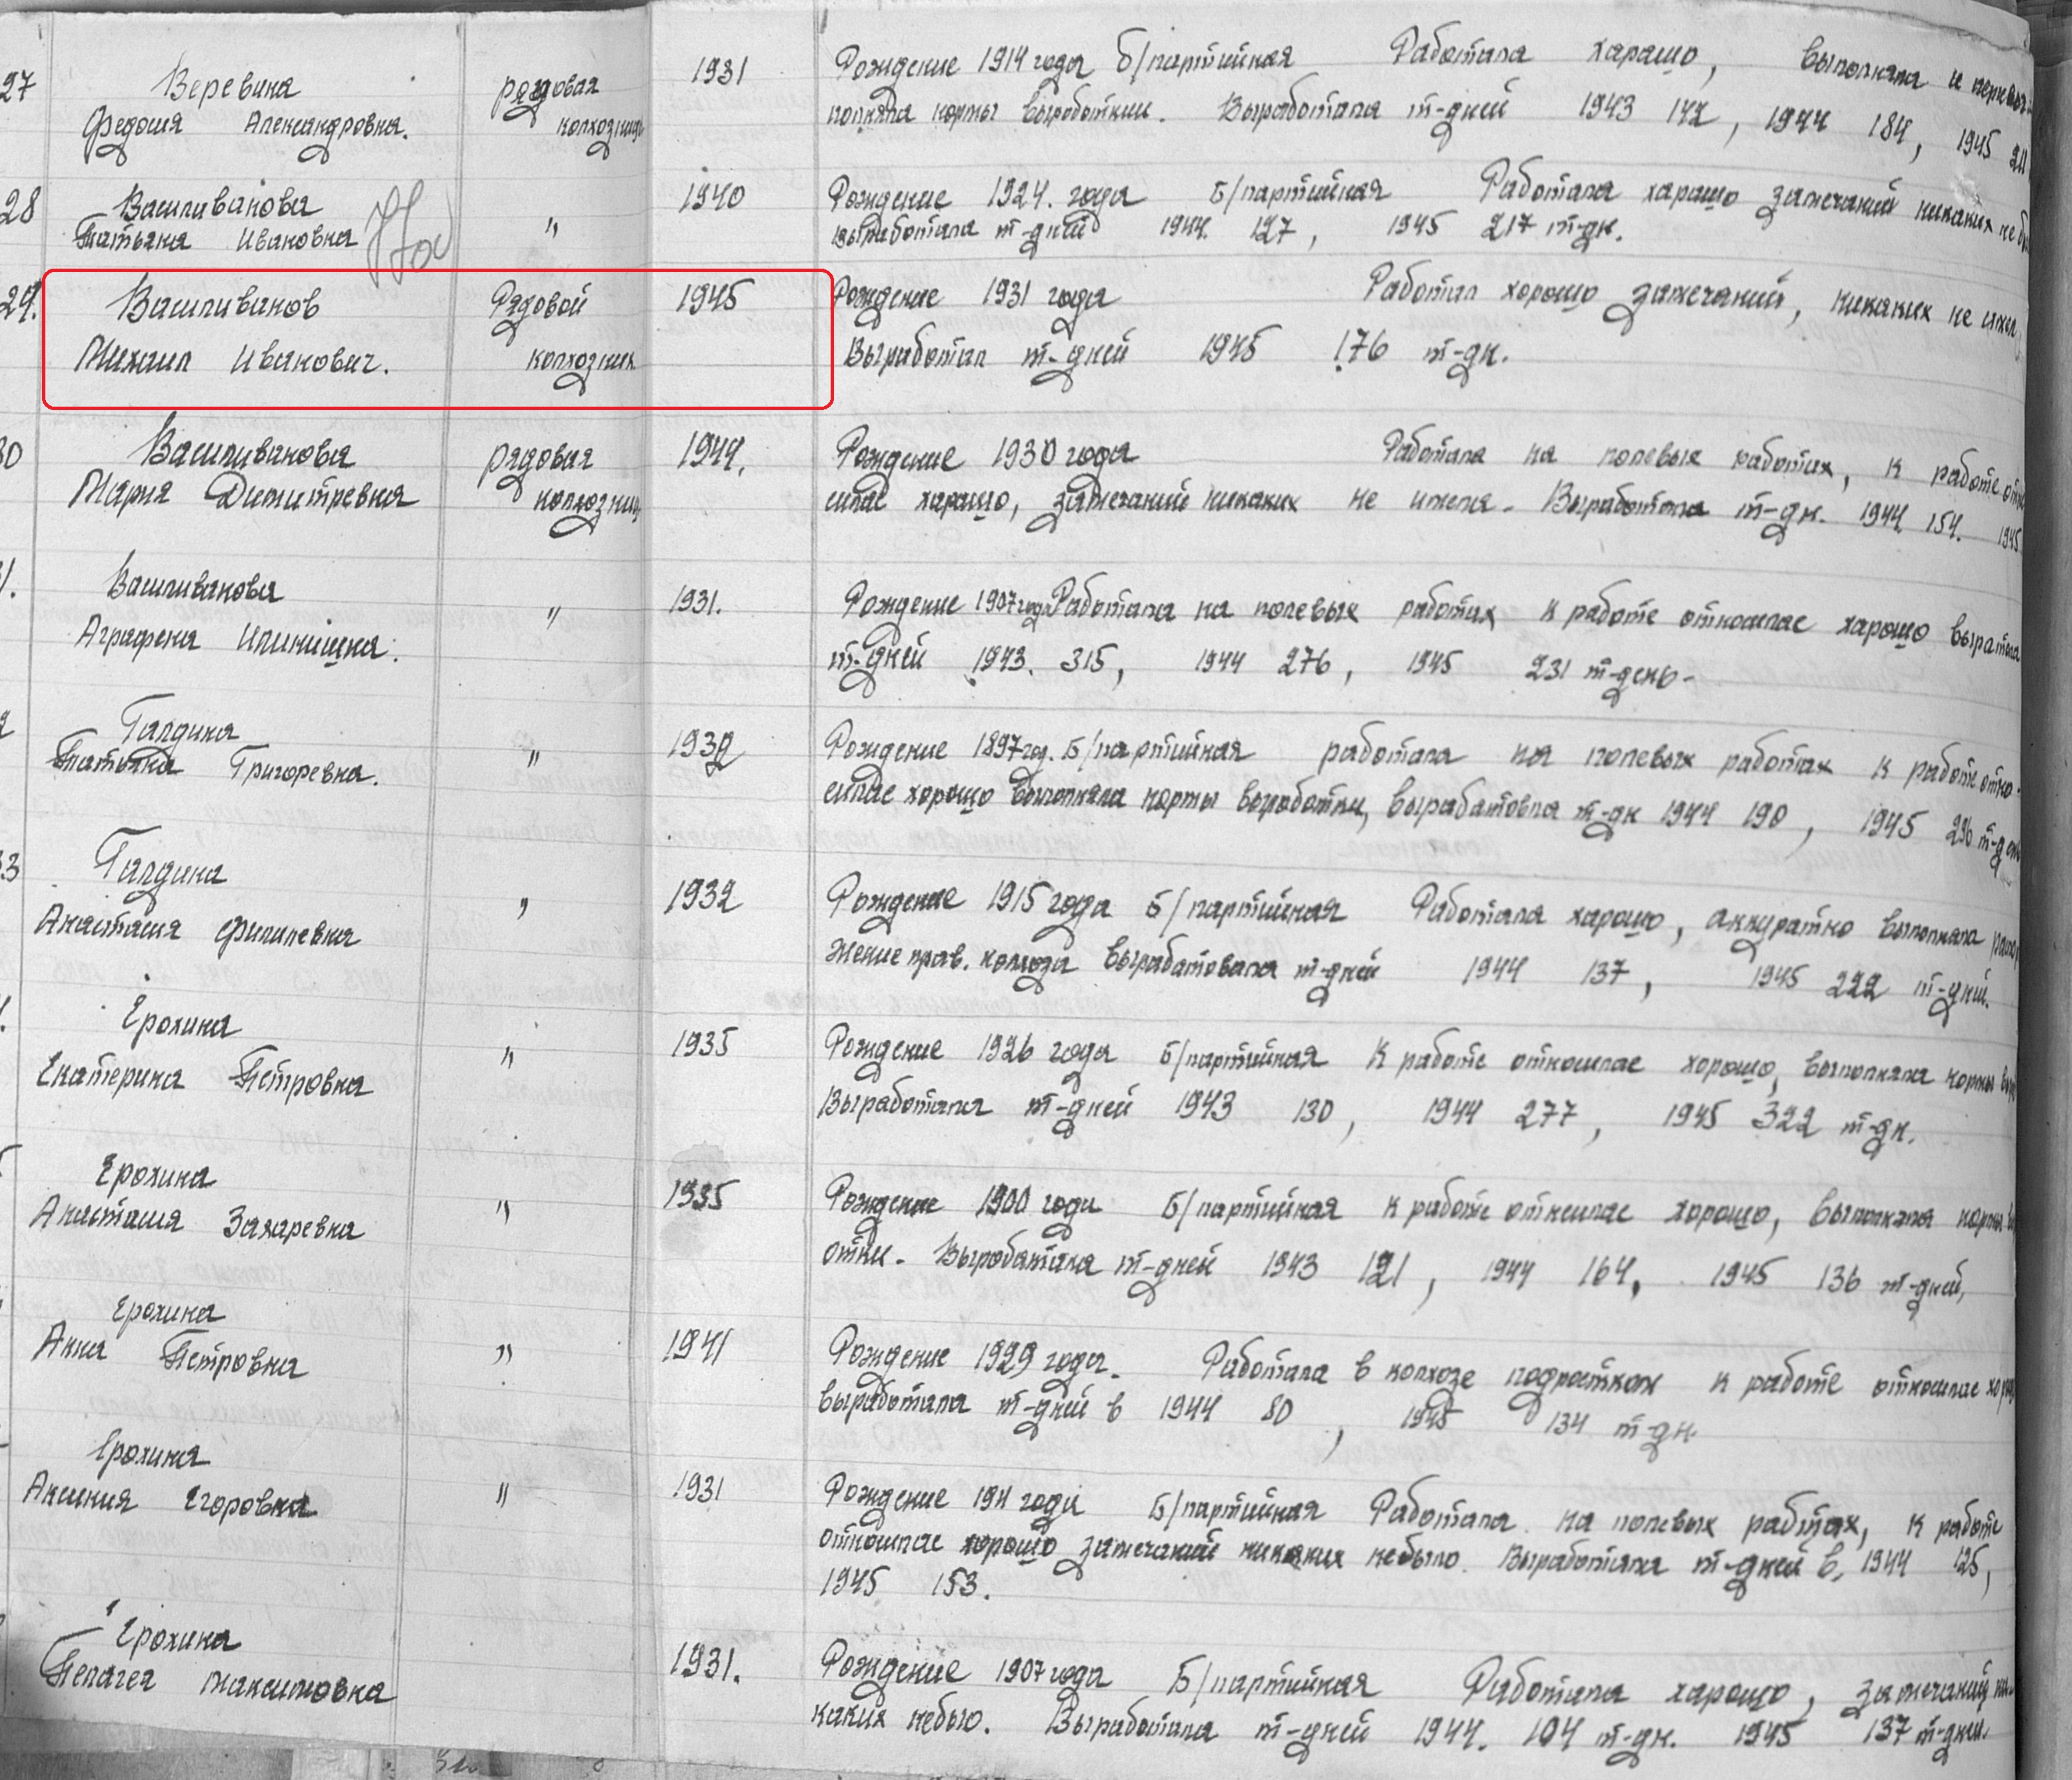 27 Веревина рядовая 1931 Рождение 1914 года б/партийная Работала харашо, выполняла и перевы
Федосия Александровна. колхозница полняла нормы выроботкии. Выработала т-дней 1943 142, 1944 184, 1945 211
28 Васильиванова 1940 Рождение 1924. года б/партийная Работала харашо замечаний никаких не бы
Татьяна Ивановна " выработала т-дней 1944. 127, 1945 217 т-дн.
29. Васильиванов Рядовой 1945 Рождение 1931 года Работал хорошо замечаний, никаких не имел
Михаил Иванович. колхозник Выработал т-дней 1945 176 т-дн.
30 Васильиванова рядовая 1944. Рождение 1930 года Работала на полевых работах, к работе отно
Мария Димитревна колхозниц силас харашо, замечаний никаких не имела. Выработала т-дн. 1944 154. 1945
1. Васильиванова 1931. Рождение 1907 года Работала на полевых работах к работе относилас харашо
Аграфена " т-дней 1943. 315, 1944 276, 1945 231 т-день-
2 Галдина 1932 Рождение 1897 год. Б/партийная работала на полевых работах к работе отно-
Татьяна Григоревна. " силас хорошо выполняла нормы выработки, вырабатовла т-дн 1944 190, 1945 226 т-ден
33 Галдина 1932 Рождение 1915 года б/партийная Работала харашо, аккуратно выполняла распо
Анастасия Филипевна " жение прав. колхоза вырабатовала т-дней 1944 137, 1945 222 т-дней.
Ерохина 1935 Рождение 1926 года б/партийная К работе относилас хорошо, выполняла нормы выр
Екатерина Петровна " Выработала т-дней 1943 130, 1944 277, 1945 322 т-дн.
Ерохина 1935 Рождение 1900 года Б/партийная К работе относилас хорошо, выполняла нормы
Анастасия Захаревна " отки. Выробатала т-дней 1943 121, 1944 164, 1945 136 т-дней,
Ерохина 1941 Рождение 1929 года. Работала в колхозе подростком к работе относилас хорош
Анна Петровна " выработала т-дней в 1944 80, 1945 134 т-дн.
Ерохина 1931 Рождение 1911 года Б/партийная Работала на полевых работах, к работе
Аксиния Егоровна " относилас хорошо замечаний никаких небыло. Выработала т-дней в, 1944 125,
1945 153.
Ерохина 1931. Рождение 1907 года Б/партийная Работала харашо, замечаний ни-
Пелагея Максимовна каких небыло. Выработала т-дней 1944. 104 т-дн. 1945 137 т-дней.